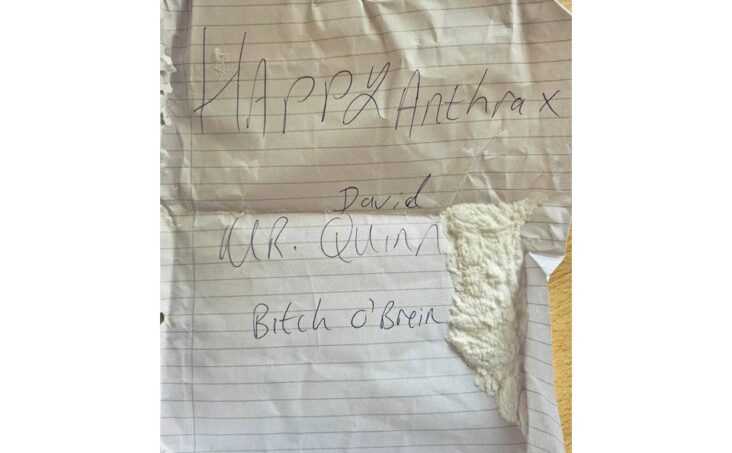 HAPPY Anthrax
David
MR. Quinn
Bitch O'Brein